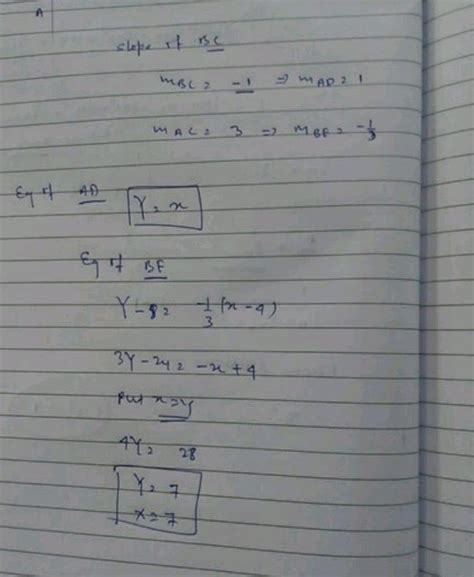 A
slope of BC
mBC = -1 ⇒ mAD = 1
mAC = 3 ⇒ mBF = -1/3
Eq of AD Y = x
Eq of BF
Y - 8 = -1/3 (x - 4)
3Y - 24 = -x + 4
Put x = y
4Y = 28
Y = 7
x = 7